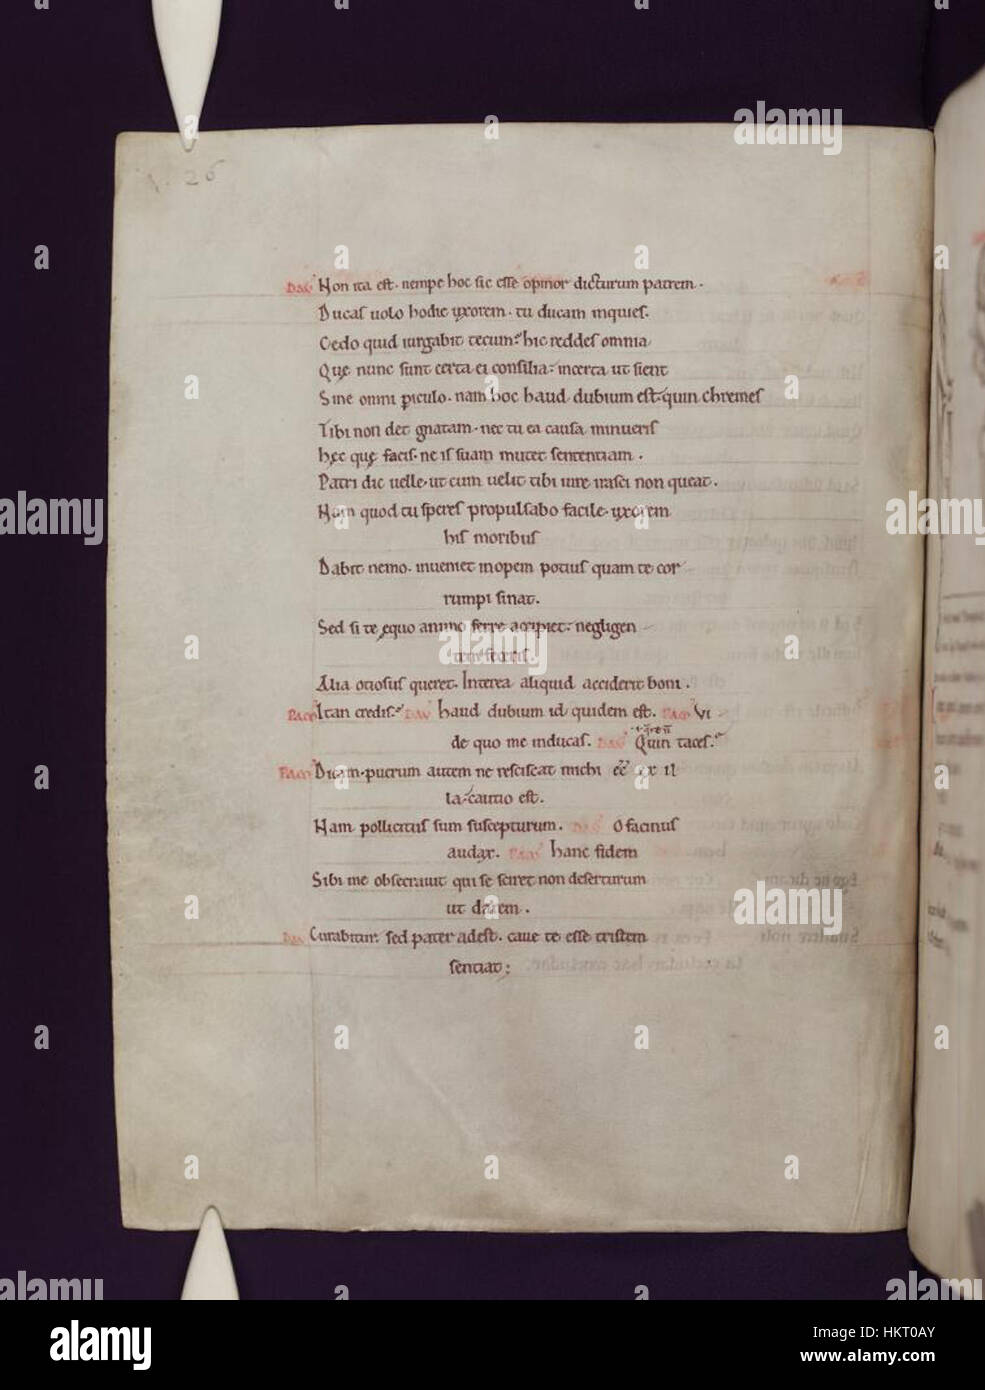 26
DAV Non ita est. nempe hoc sic esse opinor dicturum patrem.
Ducas uolo hodie uxorem. tu ducam inquies.
Cedo quid iurgabit tecum? hic reddes omnia
Quę nunc sunt certa ei consilia. incerta ut sient
Sine omni piculo. nam hoc haud dubium est. quin chremes
Tibi non det gnatam. nec tu ea causa minueris
hęc quę facis. ne is suam mutet sententiam.
Patri dic uelle. ut cum uelit tibi iure irasci non queat.
Nam quod tu speres propulsabo facile. uxorem
his moribus
Dabit nemo. inueniet inopem potius quam te cor
rumpi sinat.
Sed si te ęquo animo ferre accipiet. negligen
tem feceris.
Alia otiosus queret. Interea aliquid acciderit boni.
PAM Itan credis? DAV haud dubium id quidem est. PAM Vi
de quo me inducas. DAV Quin taces?
PAM Dicam. puerum autem ne resciscat michi ee ex il
la. cautio est.
Nam pollicitus sum suscepturum. DAV O facinus
audax. PAM hanc fidem
Sibi me obsecrauit qui se sciret non deserturum
ut darem.
DAV Curabitur. sed pater adest. caue te esse tristem
sentiat;
alamy
a
www.alamy.com
Image ID: HKT0AY